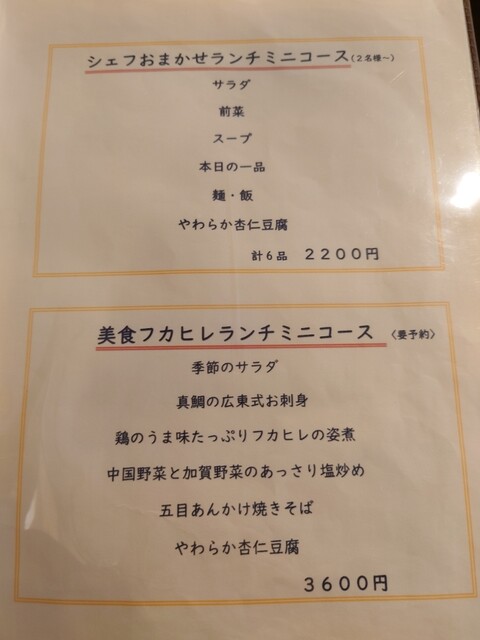 シェフおまかせランチミニコース(2名様～)
サラダ
前菜
スープ
本日の一品
麺・飯
やわらか杏仁豆腐
計6品 2200円
美食フカヒレランチミニコース 〈要予約〉
季節のサラダ
真鯛の広東式お刺身
鶏のうま味たっぷりフカヒレの姿煮
中国野菜と加賀野菜のあっさり塩炒め
五目あんかけ焼きそば
やわらか杏仁豆腐
3600円